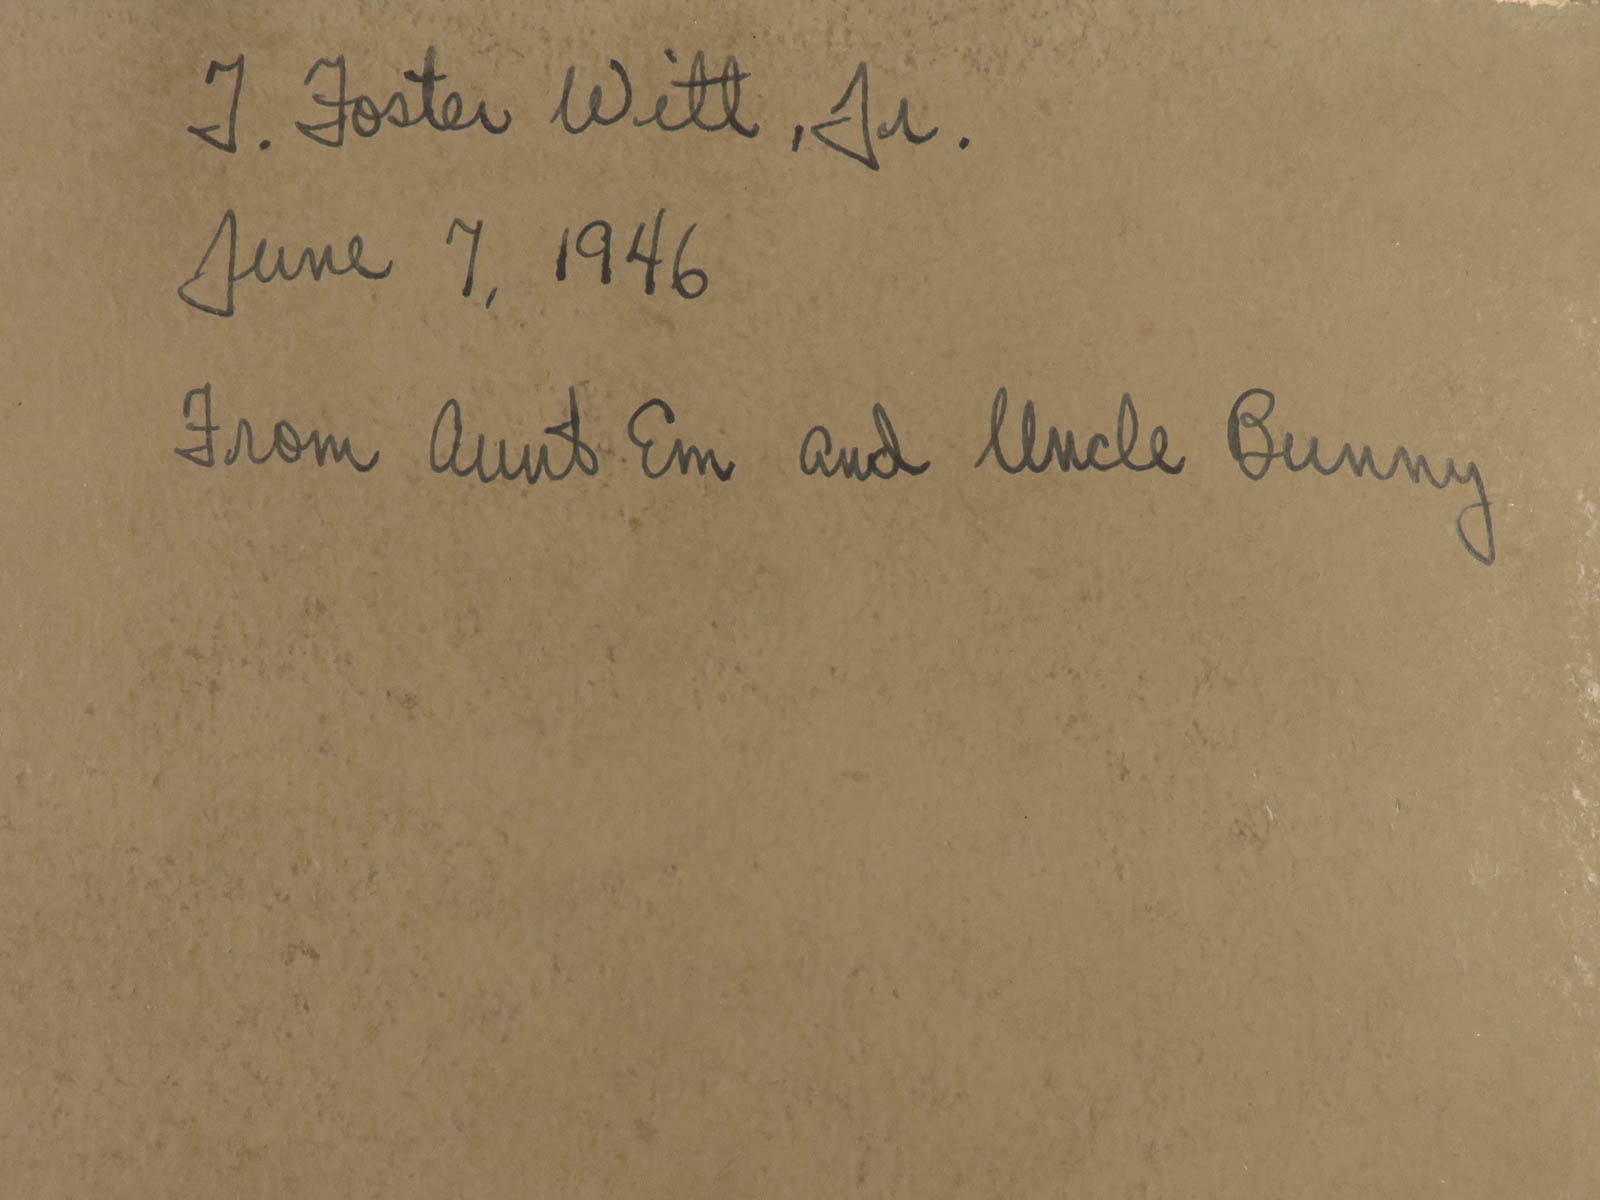 T. Foster Witt, Jr.
June 7, 1946
From Aunt Em and Uncle Bunny